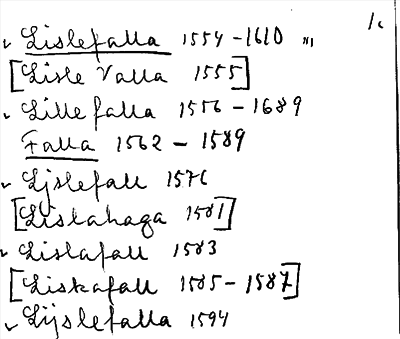 Lislefalla 1554-1610 "1 1.
[Lisle Valla 1555]
Lillefalla 1556-1689
Falla 1562-1589
Ljslefall 1576
[Lislahaga 1581]
Lislafall 1583
[Liskafall 1585-1587]
Lijslefalla 1594